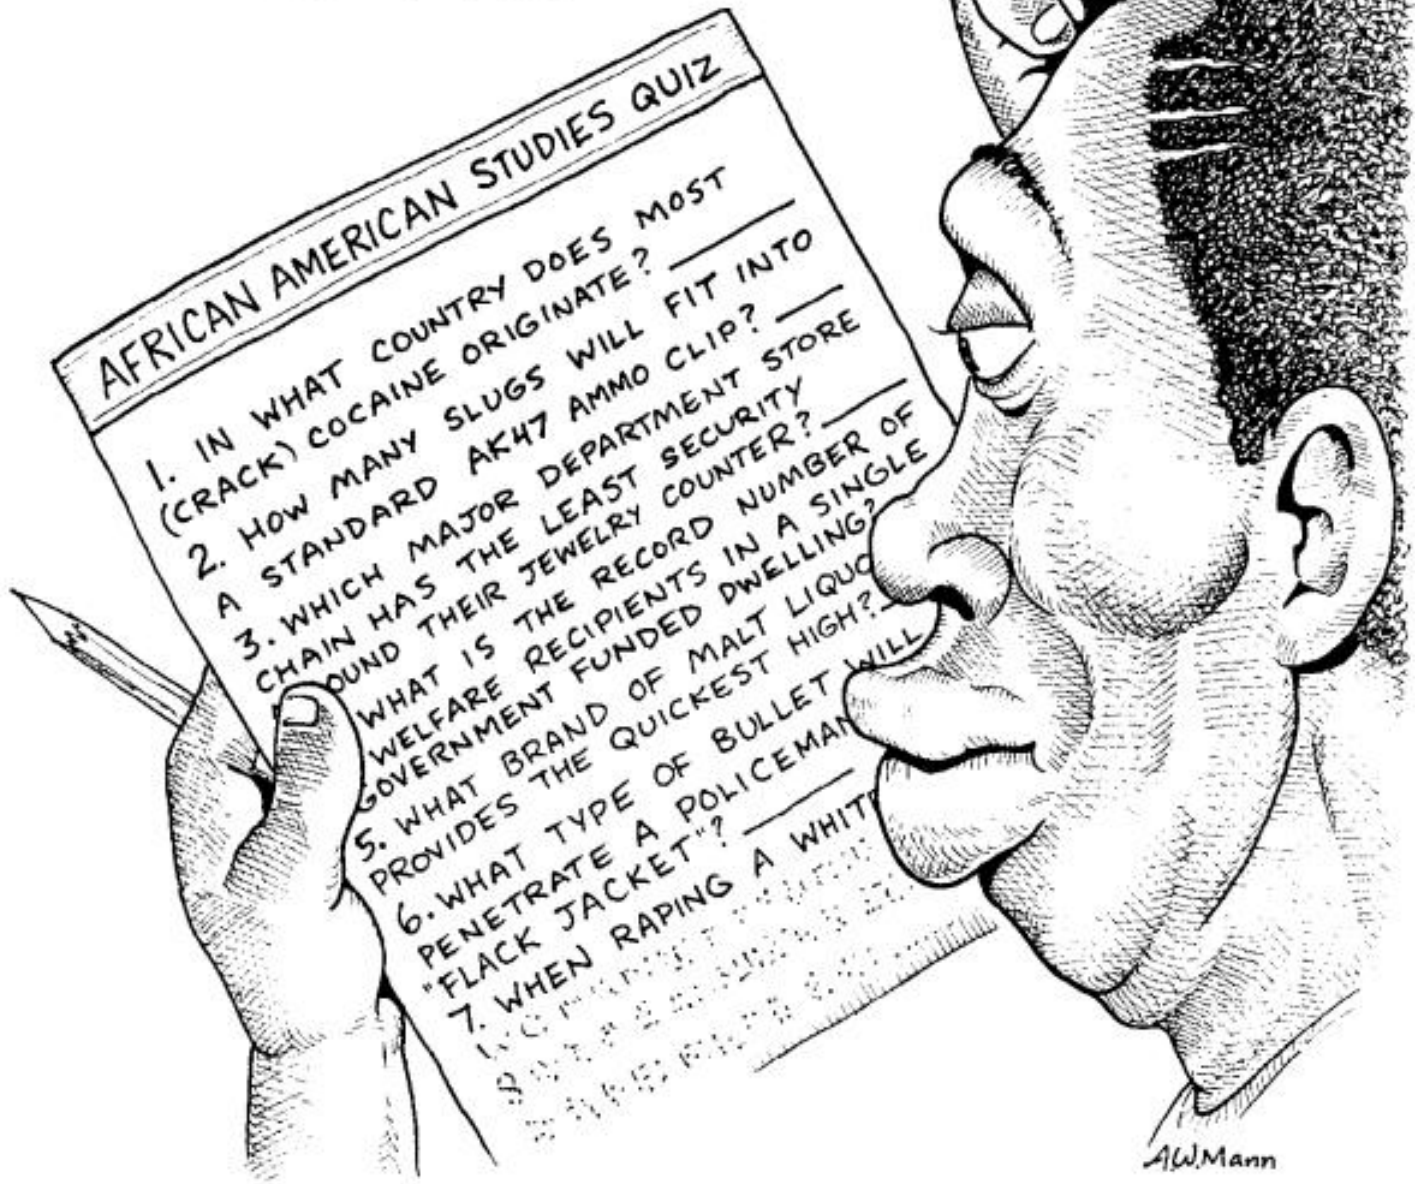 AFRICAN AMERICAN STUDIES QUIZ
1. IN WHAT COUNTRY DOES MOST
(CRACK) COCAINE ORIGINATE?
2. HOW MANY SLUGS WILL FIT INTO
A STANDARD AK47 AMMO CLIP?
3. WHICH MAJOR DEPARTMENT STORE
CHAIN HAS THE LEAST SECURITY
OUND THEIR JEWELRY COUNTER?
WHAT IS THE RECORD NUMBER OF
WELFARE RECIPIENTS IN A SINGLE
GOVERNMENT FUNDED DWELLING?
5. WHAT BRAND OF MALT LIQUO
PROVIDES THE QUICKEST HIGH?
6. WHAT TYPE OF BULLET WILL
PENETRATE A POLICEMAN
"FLACK JACKET"?
7. WHEN RAPING A WHIT
A.W.Mann